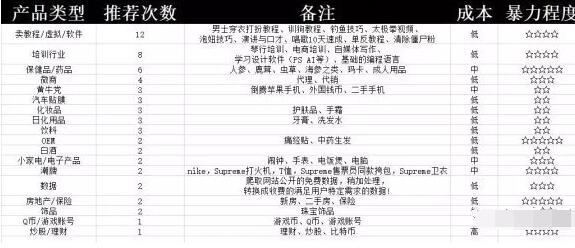 产品类型 推荐次数 备注 成本 暴力程度
卖教程/虚拟/软件 12 男士穿衣打扮教程、训狗教程、钓鱼技巧、太极晕视频、
泡妞技巧、演讲与口才、唱歌10天速成、单反教程、清除僵尸粉 低 ☆☆☆☆
培训行业 8 琴行培训、电商培训、自媒体写作、
学习设计软件（PS AI等）、基础的编程语言 低 ☆☆☆☆
保健品/药品 6 人参、鹿茸、虫草、海参之类、玛卡、成人用品 中 ☆☆☆☆☆
微商 4 代理、代销 低 ☆☆☆
黄牛党 3 倒腾苹果手机、外国钱币、二手手机 中 ☆☆
汽车贴膜 3 低 ☆☆
化妆品 3 护肤品、手霜 低 ☆☆☆
日化用品 3 牙膏、洗发水 低 ☆☆☆
饮料 3 低 ☆☆
OEM 2 痛经贴、中药生发 低 ☆☆☆☆☆
白酒 2 低 ☆☆
小家电/电子产品 2 闹钟、手表、电饭煲、电脑 中 ☆☆
潮牌 2 nike，Supreme打火机，T恤，Supreme售票员同款挎包，Supreme卫衣 中 ☆☆☆☆
数据 2 爬取网站公开的免费数据，稍加处理，
转换成收费的满足用户特定需求的数据！ 低 ☆☆☆
房地产/保险 2 新房、二手房、保险 低 ☆☆☆☆
饰品 2 珠宝饰品
Q币/游戏账号 1 游戏币、Q币、游戏账号
炒股/理财 1 理财、炒股、比特币 高 ☆☆☆☆☆